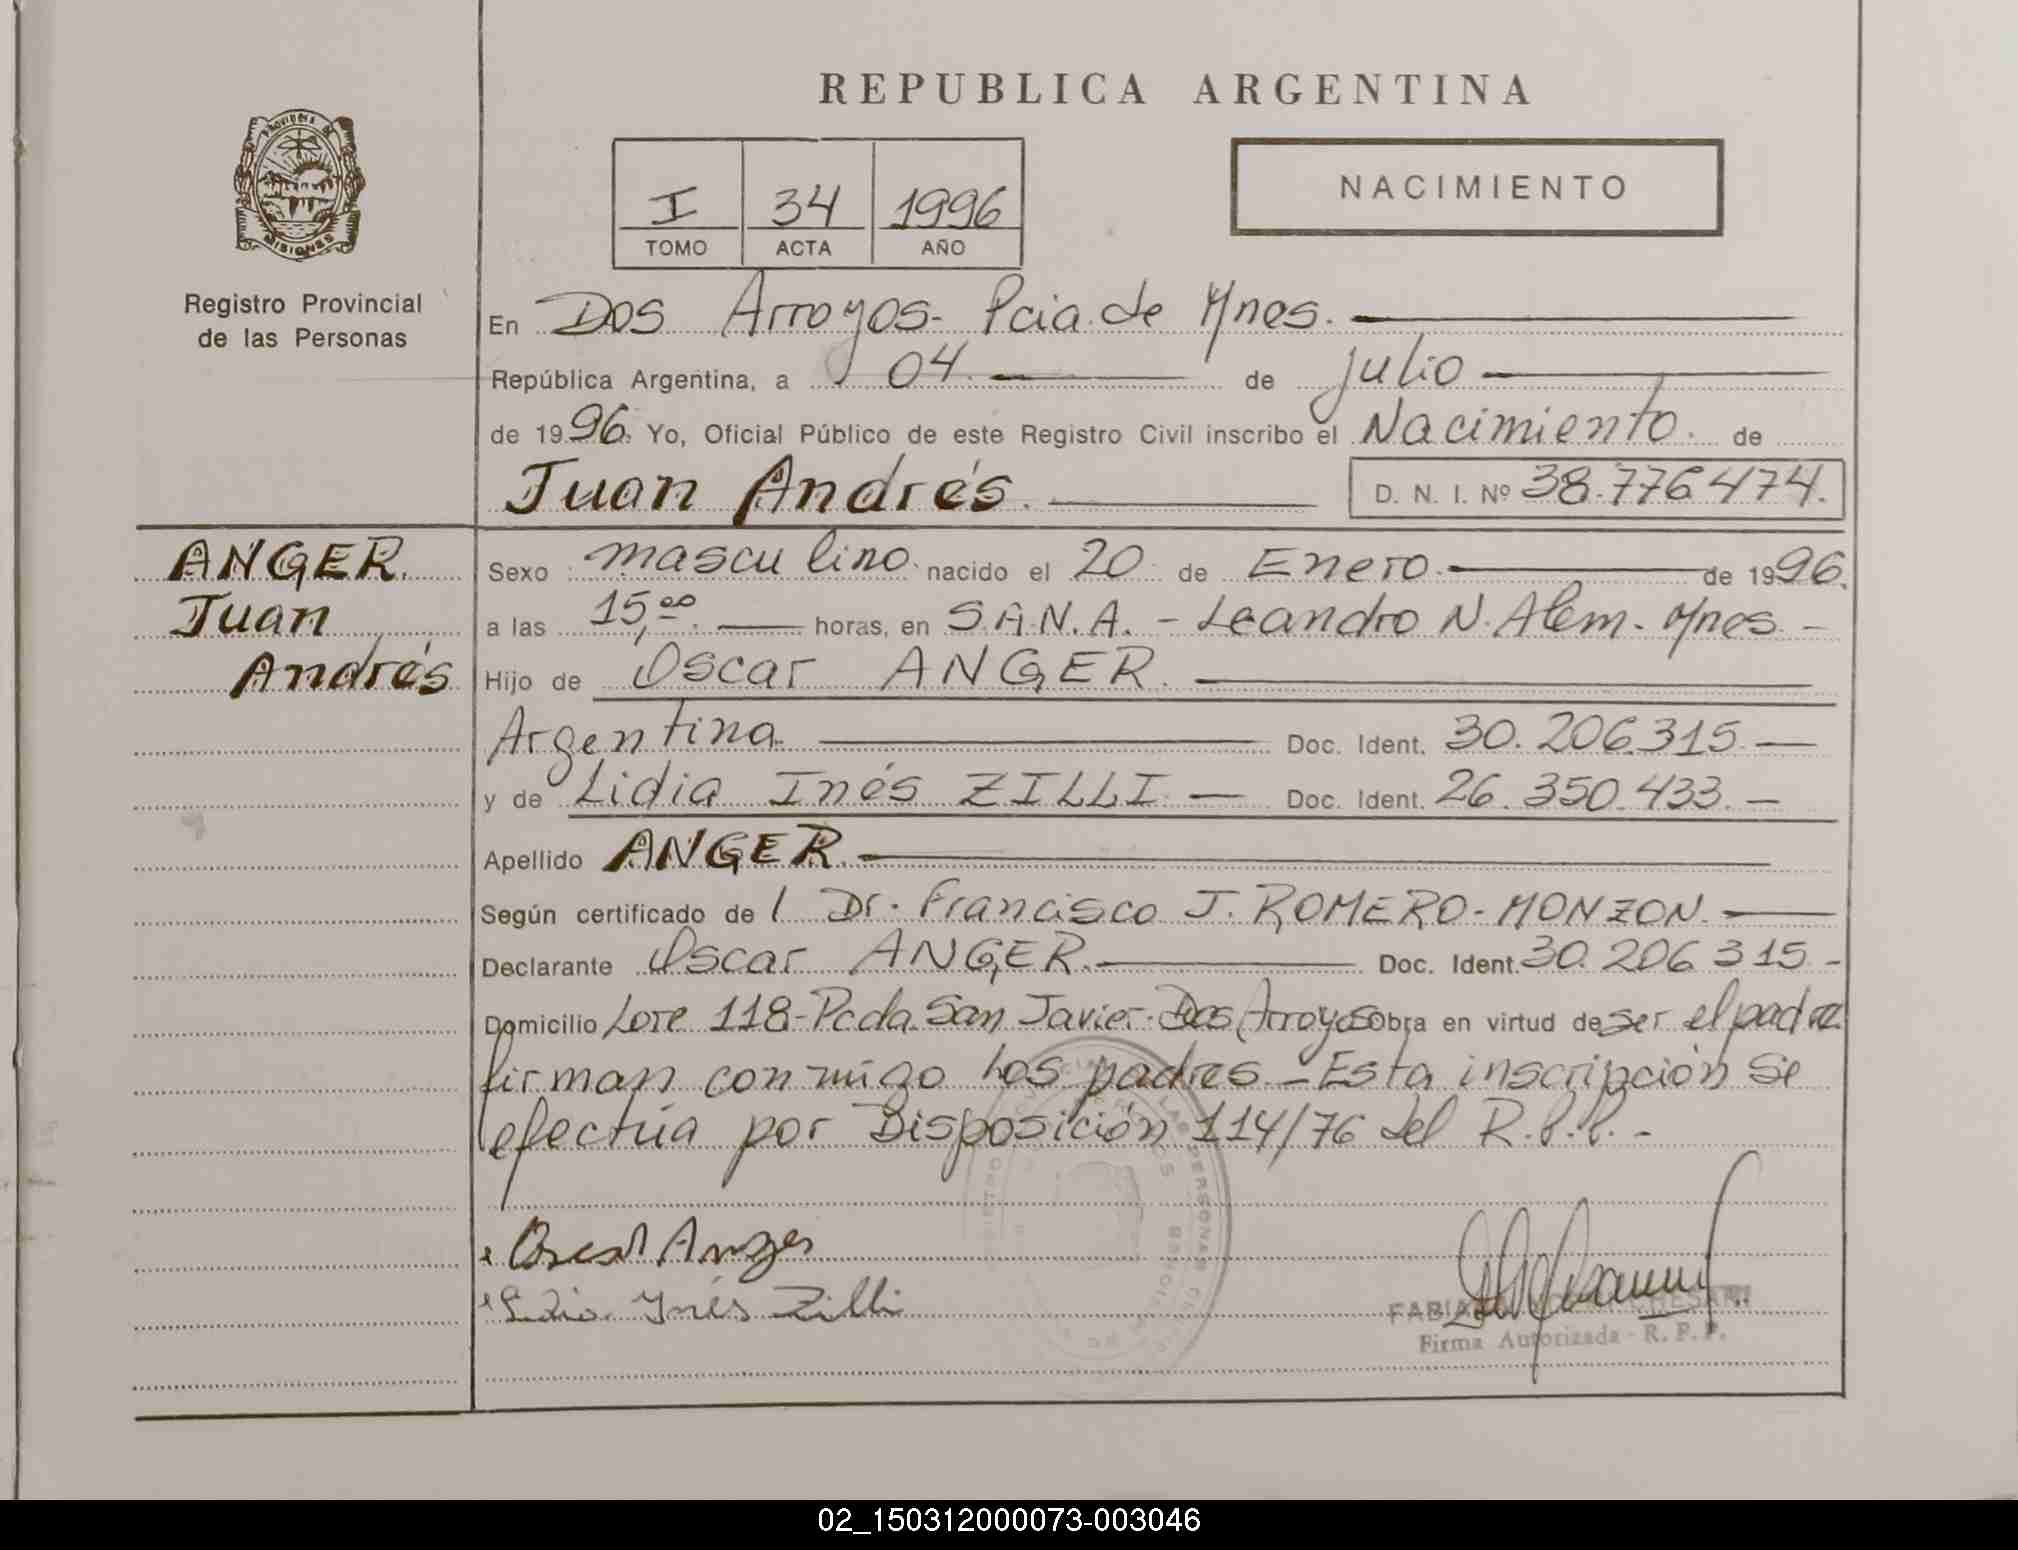 REPUBLICA ARGENTINA
PROVINCIA DE
MISIONES
Registro Provincial
de las Personas
I 34 1996
TOMO ACTA AÑO
NACIMIENTO
En Dos Arroyos- Pcia de Mnes.
República Argentina, a 04. de julio
de 1996. Yo, Oficial Público de este Registro Civil inscribo el Nacimiento. de
Juan Andrés. D. N. I. Nº 38.776.474.
ANGER.
Juan
Andrés
Sexo masculino. nacido el 20 de Enero. de 1996.
a las 15,00. horas, en S.A.N.A. - Leandro N. Alem. Mnes. -
Hijo de Oscar ANGER.
Argentina. Doc. Ident. 30.206.315.-
y de Lidia Inés ZILLI - Doc. Ident. 26.350.433.-
Apellido ANGER.
Según certificado de Dr. Francisco J. ROMERO-MONZON.
Declarante Oscar ANGER. Doc. Ident. 30.206.315.-
Domicilio Lote 118-Pcda. San Javier-Dos Arroyos Obra en virtud de ser el padre
firman conmigo los padres.-Esta inscripción se
efectúa por Disposición 114/76 del R.P.P.-
Oscar Anger
Lidia Ynés Zilli
Firma Autorizada - R. P. P.
02_150312000073-003046